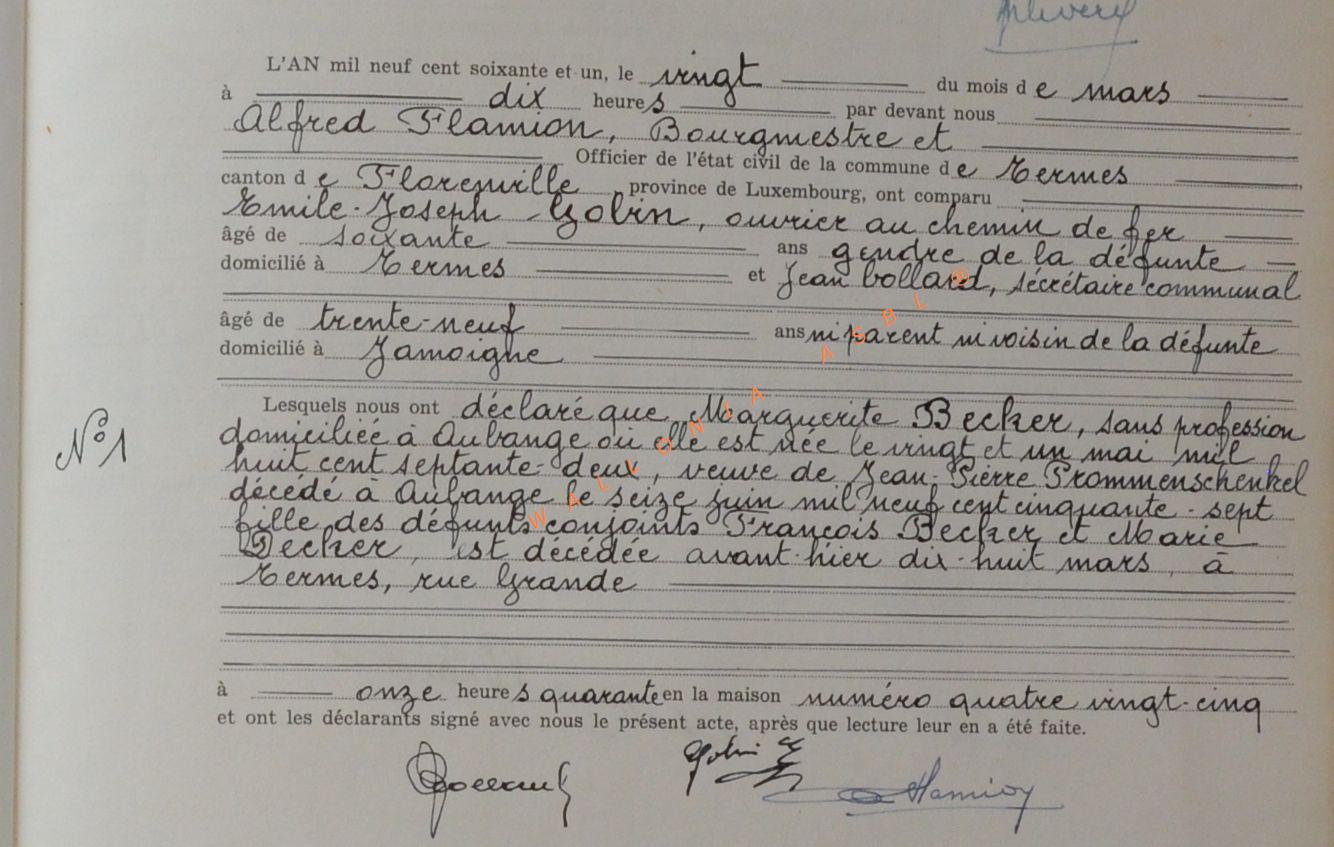 L'AN mil neuf cent soixante et un, le vingt du mois de mars
à dix heures par devant nous
Alfred Flamion, Bourgmestre et
Officier de l'état civil de la commune de Termes
canton de Florenville province de Luxembourg, ont comparu
Emile-Joseph Gobin, ouvrier au chemin de fer
âgé de soixante ans gendre de la défunte
domicilié à Termes et Jean Collard, sécrétaire communal
âgé de trente-neuf ans ni parent ni voisin de la défunte
domicilié à Jamoigne
Lesquels nous ont déclaré que Marguerite Becker, sans profession
N° 1
domiciliée à Aubange où elle est née le vingt et un mai mil
huit cent septante-deux, veuve de Jean-Pierre Prommenschenkel
décédé à Aubange le seize juin mil neuf cent cinquante-sept
fille des défunts conjoints François Becker et Marie
Decker, est décédée avant-hier dix-huit mars, à
Termes, rue Grande
à onze heures quarante en la maison numéro quatre vingt-cinq
et ont les déclarants signé avec nous le présent acte, après que lecture leur en a été faite.
Collard Gobin E Flamion
WALLONIA ASBL ©